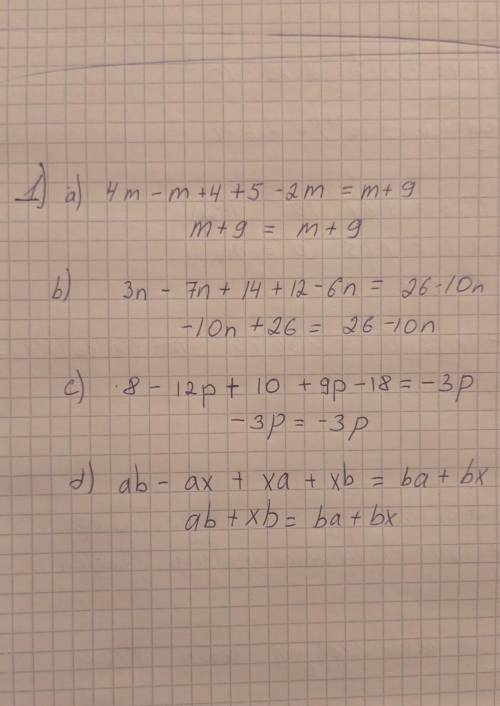 1) a) 4m - m + 4 + 5 - 2m = m + 9
m + 9 = m + 9
b) 3n - 7n + 14 + 12 - 6n = 26 - 10n
-10n + 26 = 26 - 10n
c) 8 - 12p + 10 + 9p - 18 = -3p
-3p = -3p
d) ab - ax + xa + xb = ba + bx
ab + xb = ba + bx